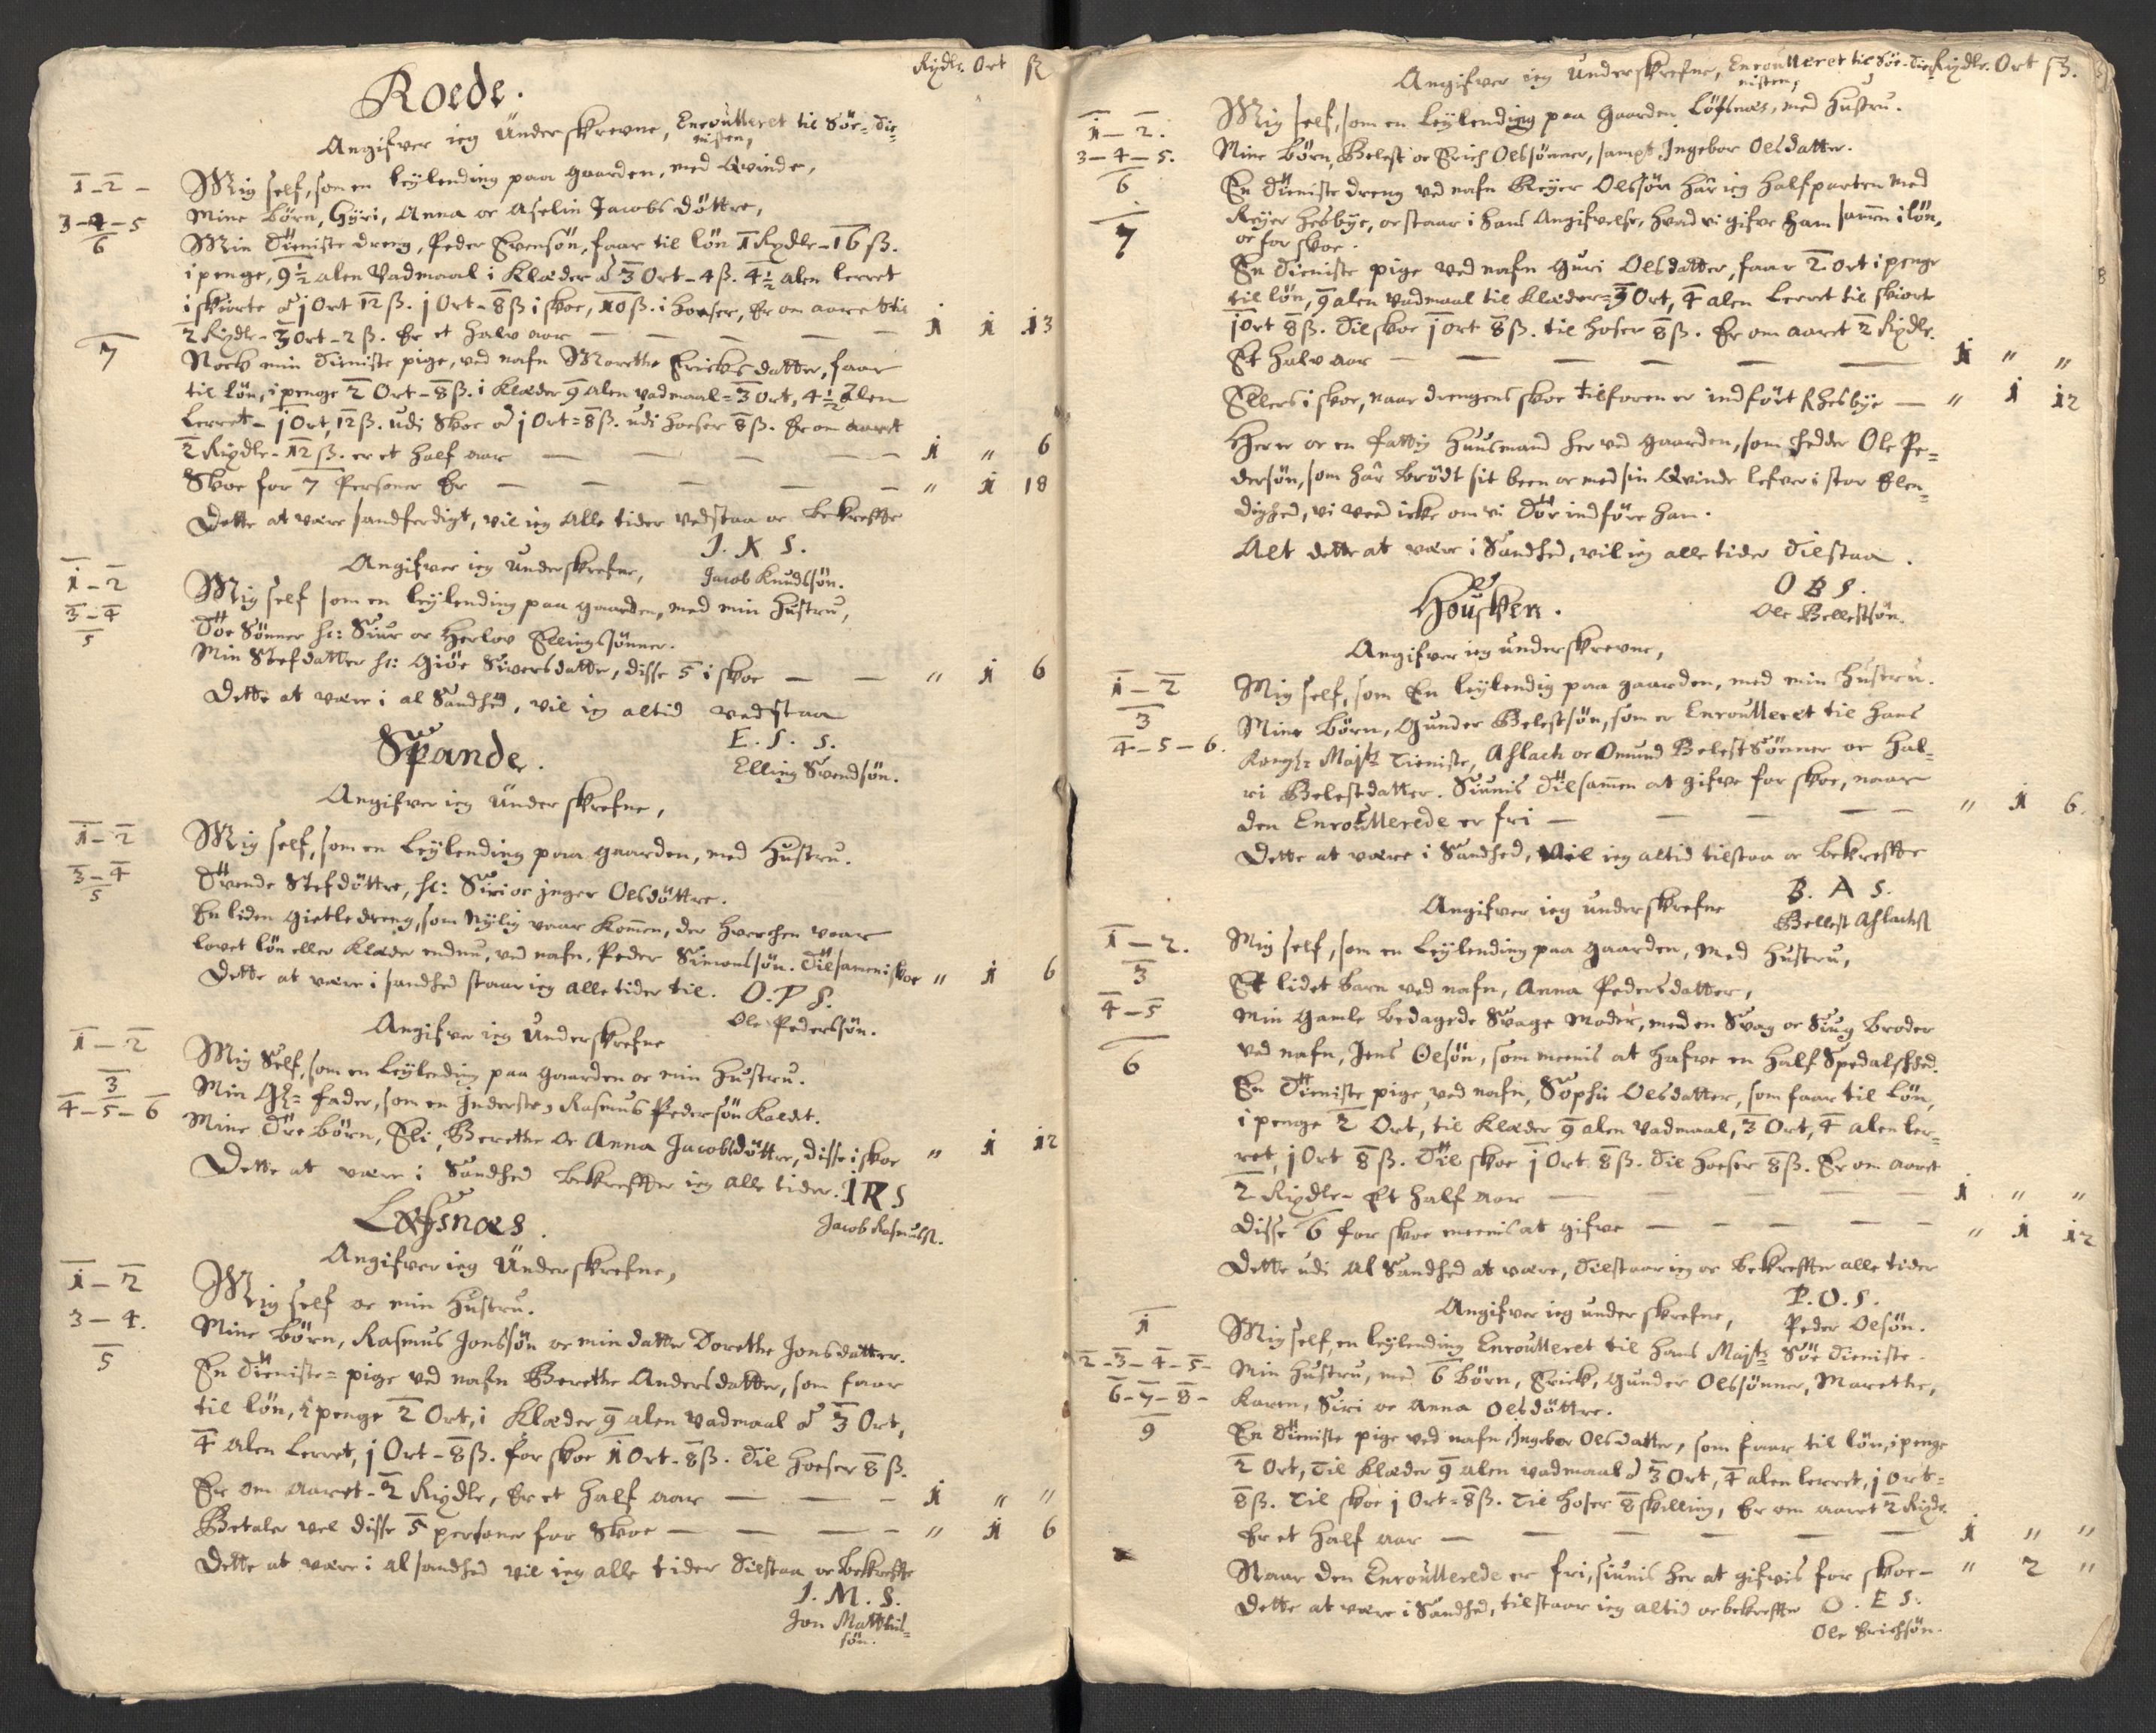 Rixdlr. Ort ß
Roede.
Angifver ieg Underskrevne, Enroulleret til Söe-Die-
nisten,
1-2- Mig self, som en leylending paa gaarden, med Qvinde,
3-4-5 Mine börn, Gyri, Anna oc Aselin Jacobs döttre,
6 Min Dieniste dreng, Peder Svensön, faar til lön 1 Rixdlr-16 ß.
i penge, 9½ alen Vadmaal i Klæder à 3 Ort-4 ß. 4½ alen lerret
i skiorte à 1 Ort 12 ß. 1 Ort-8 ß i skoe, 10 ß. i hoeser, Er om aaret
2 Rixdlr-3 Ort-2 ß. Er et halv aar — — — — 1 1 13
7 Nock min Dieniste pige, ved nafn Marethe Ericksdatter, faar
til lön, i penge 2 Ort-8 ß. i Klæder 9 alen vadmaal=3 ort, 4½ Alen
Lerret- 1 Ort, 12 ß. udi Skoe à 1 Ort=8 ß. udi hoeser 8 ß. Er om aaret
2 Rixdlr-12 ß. er et half aar — — — — 1 " 6
Skoe for 7 Personer Er — — — — " 1 18
Dette at være sandferdigt, vil ieg alle tider vedstaa oc bekreffte
J. K S.
Angifver ieg Underskrefne, Jacob Knudssön.
1-2 Mig self som en leylending paa gaarden, med min hustru,
3-4 Toe Sönner hr: Siur oc Herlov Ellingssönner.
5 Min Stefdatter hr: Giöe Siversdatter, disse 5 i skoe — — " 1 6
Dette at være i al Sandhed, vil ieg altid vedstaa
E. S. S.
Spande. Elling Svendsön.
Angifver ieg Underskrefne,
1-2 Mig self, som en Leylending paa gaarden, med Hustru.
3-4 Tvende Stefdöttre, hr: Siri oc Inger Olsdöttre.
5 En liden gietledreng, som nylig vaar kommen, der hverchen vaar
lovet lön eller klæder endnu, ved nafn, Peder Simonssön. Tilsamen i skoe " 1 6
Dette at være i sandhed staar ieg alle tider til. O. P S.
Ole Pederssön.
Angifver ieg Underskrefne
1-2 Mig Self, som en Leylending paa gaarden oc min Hustru.
3 Min Gl= fader, som en Inderste, Rasmus Pedersön kaldt.
4-5-6 Mine Tre börn, Eli, Berethe oc Anna Jacobsdöttre, disse i skoe " 1 12
Dette at være i Sandhed bekreffter ieg alle tider. I R S
Jacob Rasmuss.
Læssnæs.
Angifver ieg Underskrefne,
1-2 Mig self oc min Hustru.
3-4. Mine börn, Rasmus Jonssön oc min datter Dorethe Jonsdatter.
5 En Dieniste-pige ved nafn Berethe Andersdatter, som faar
til lön, i penge 2 Ort, i Klæder 9 alen vadmaal à 3 Ort,
4 alen Lerret, 1 Ort-8 ß. for skoe 1 Ort-8 ß. Til hoeser 8 ß.
Er om aaret-2 Rixdlr, Er et half aar — — — 1 " "
Betaler vel disse 5 personer for Skoe — — — — " 1 6
Dette at være i al sandhed vil ieg alle tider Tilstaa oc bekreffte
J. M. S.
Jon Matthis=
sön.
Angifver ieg Underskrefne, Enroulleret til Söe-Die- Rixdlr. Ort ß.
nisten,
1-2. Mig self, som en Leylending paa Gaarden Löfsnæs, med Hustru.
3-4-5. Mine Börn, Belest oc Erich Olssönner, sampt Ingebor Olsdatter.
6 En Dieniste dreng ved nafn Reyer Olssön har ieg halfparten med
7 Reyer Hesbye, oc staar i hans Angifvelse, hvad vi gifve ham samen i lön,
oc for skoe.
En Dieniste pige ved nafn Guri Olsdatter, faar 2 ort i penge
til lön, 9 alen vadmaal til klæder=3 Ort, 4 alen Lerret til skiorte
1 Ort 8 ß. Til skoe 1 ort 8 ß. til hoser 8 ß. Er om aaret 2 Rixdlr.
Et halv aar — — — — — — 1 " "
Ellers i skoe, naar drengens skoe tilforen er indfört Rhesbye — " 1 12
Her er oc en fattig huusmand her ved gaarden, som hedder Ole Pe=
dersön, som har brödt sit been oc med sin Qvinde lefver i stor Elen=
dighed, vi veed icke om vi Tör indföre ham.
Alt dette at være i Sandhed, vil ieg alle tider tilstaa.
O B S.
Houshen. Ole Bellestsön.
Angifver ieg underskrevne,
1-2 Mig self, som En leylendig paa gaarden, med min hustru.
3 Mine börn, Gunder Belestsön, som er Enroulleret til hans
4-5-6. Kongl= Maj.ts Tieniste, Aslach oc Omund Belestsönner oc Hal=
ri Belestdatter. Siunis Tilsamen at gifve for skoe, naar
den Enroullerede er fri — — — — — " 1 6.
Dette at være i Sandhed, vil ieg altid tilstaa oc bekreffte
B. A S.
Angifver ieg underskrefne Bellest Aslachs
1-2. Mig self, som en Leylending paa gaarden, med Hustru,
3 Et lidet barn ved nafn, Anna Pedersdatter,
4-5 Min gamle bedagede Svage Moder, med en Svag oc Siug broder
6 ved nafn, Jens Olsön, som meenis at hafve en half Spedalsched.
En Dieniste pige, ved nafn, Sophie Olsdatter, som faar til lön,
i penge 2 Ort, til klæder 9 alen vadmaal, 3 Ort, 4 alen ler=
ret, 1 Ort 8 ß. Til skoe 1 Ort 8 ß. Til hoeser 8 ß. Er om aaret
2 Rixdlr- Et half aar — — — — 1 " "
Disse 6 for skoe meenis at gifve — — — — — " 1 12
Dette udi al Sandhed at være, Tilstaar ieg oc bekreffter alle tider
P. O. S.
Angifver ieg underskrefne, Peder Olsön.
1 Mig self, en leylending Enroulleret til hans Maj.ts Söe Dieniste.
2-3-4-5- Min Hustru, med 6 börn, Erick, Gunder Olssönner, Marethe,
6-7-8- Karen, Siri oc Anna Olsdöttre.
9 En Dieniste pige ved nafn, Ingebor Olsdatter, som faar til lön, i penge
2 Ort, Til klæder 9 alen vadmaal à 3 Ort, 4 alen lerret, 1 ort=
8 ß. Til skoe 1 Ort=8 ß. Til hoser 8 skilling, Er om aaret 2 Rixdr.
Er et half aar — — — — — — 1 " "
Naar den Enroullerede er fri, siunis her at gifvis for skoe- " 2 "
Dette at være i Sandhed, tilstaar ieg altid oc bekreffter O. E S.
Ole Erichsön.